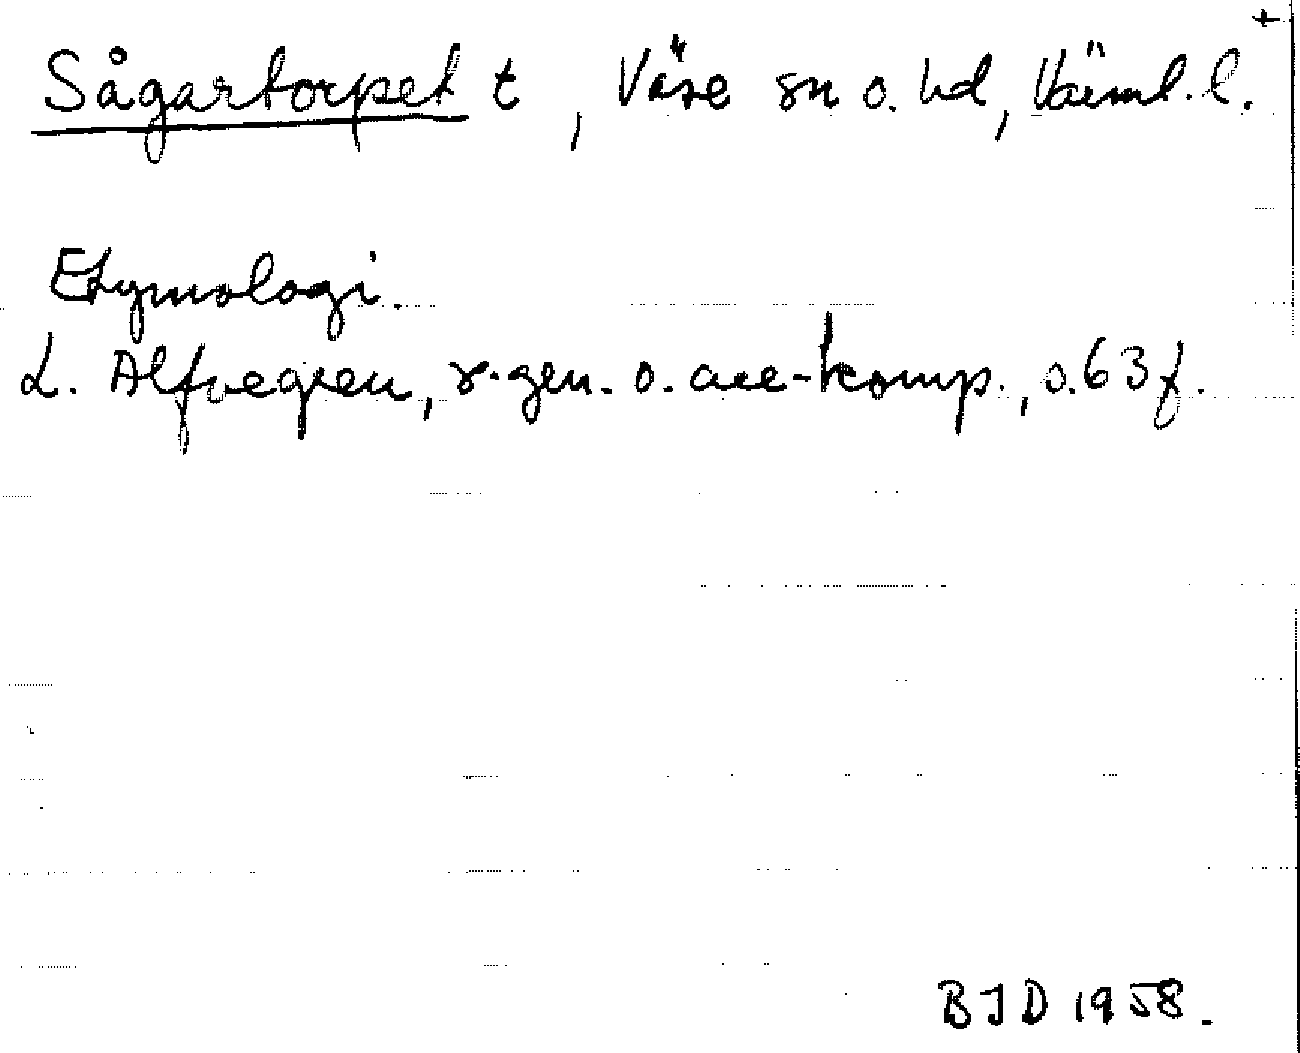 +
Sågartorpet t, Väse sn o. hd, Värml. l.
Etymologi.
L. Alfvegren, r-gen. o. are-komp., s. 63 f.
BJD 1958.